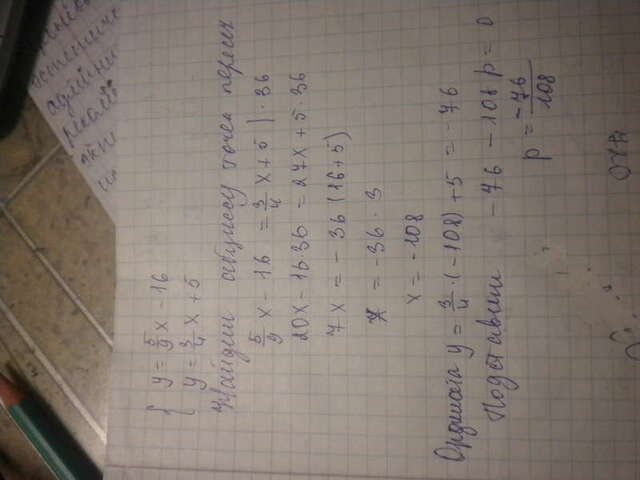 y = 5/9 x - 16
y = 3/4 x + 5
Найдем абциссу точек пересеч
5/9 x - 16 = 3/4 x + 5 | · 36
20x - 16·36 = 27x + 5·36
7x = - 36 (16+5)
x = -36 · 3
x = -108
Ордината y = 3/4 · (-108) + 5 = -76
Подставим -76 - 108 p = 0
p = -76/108